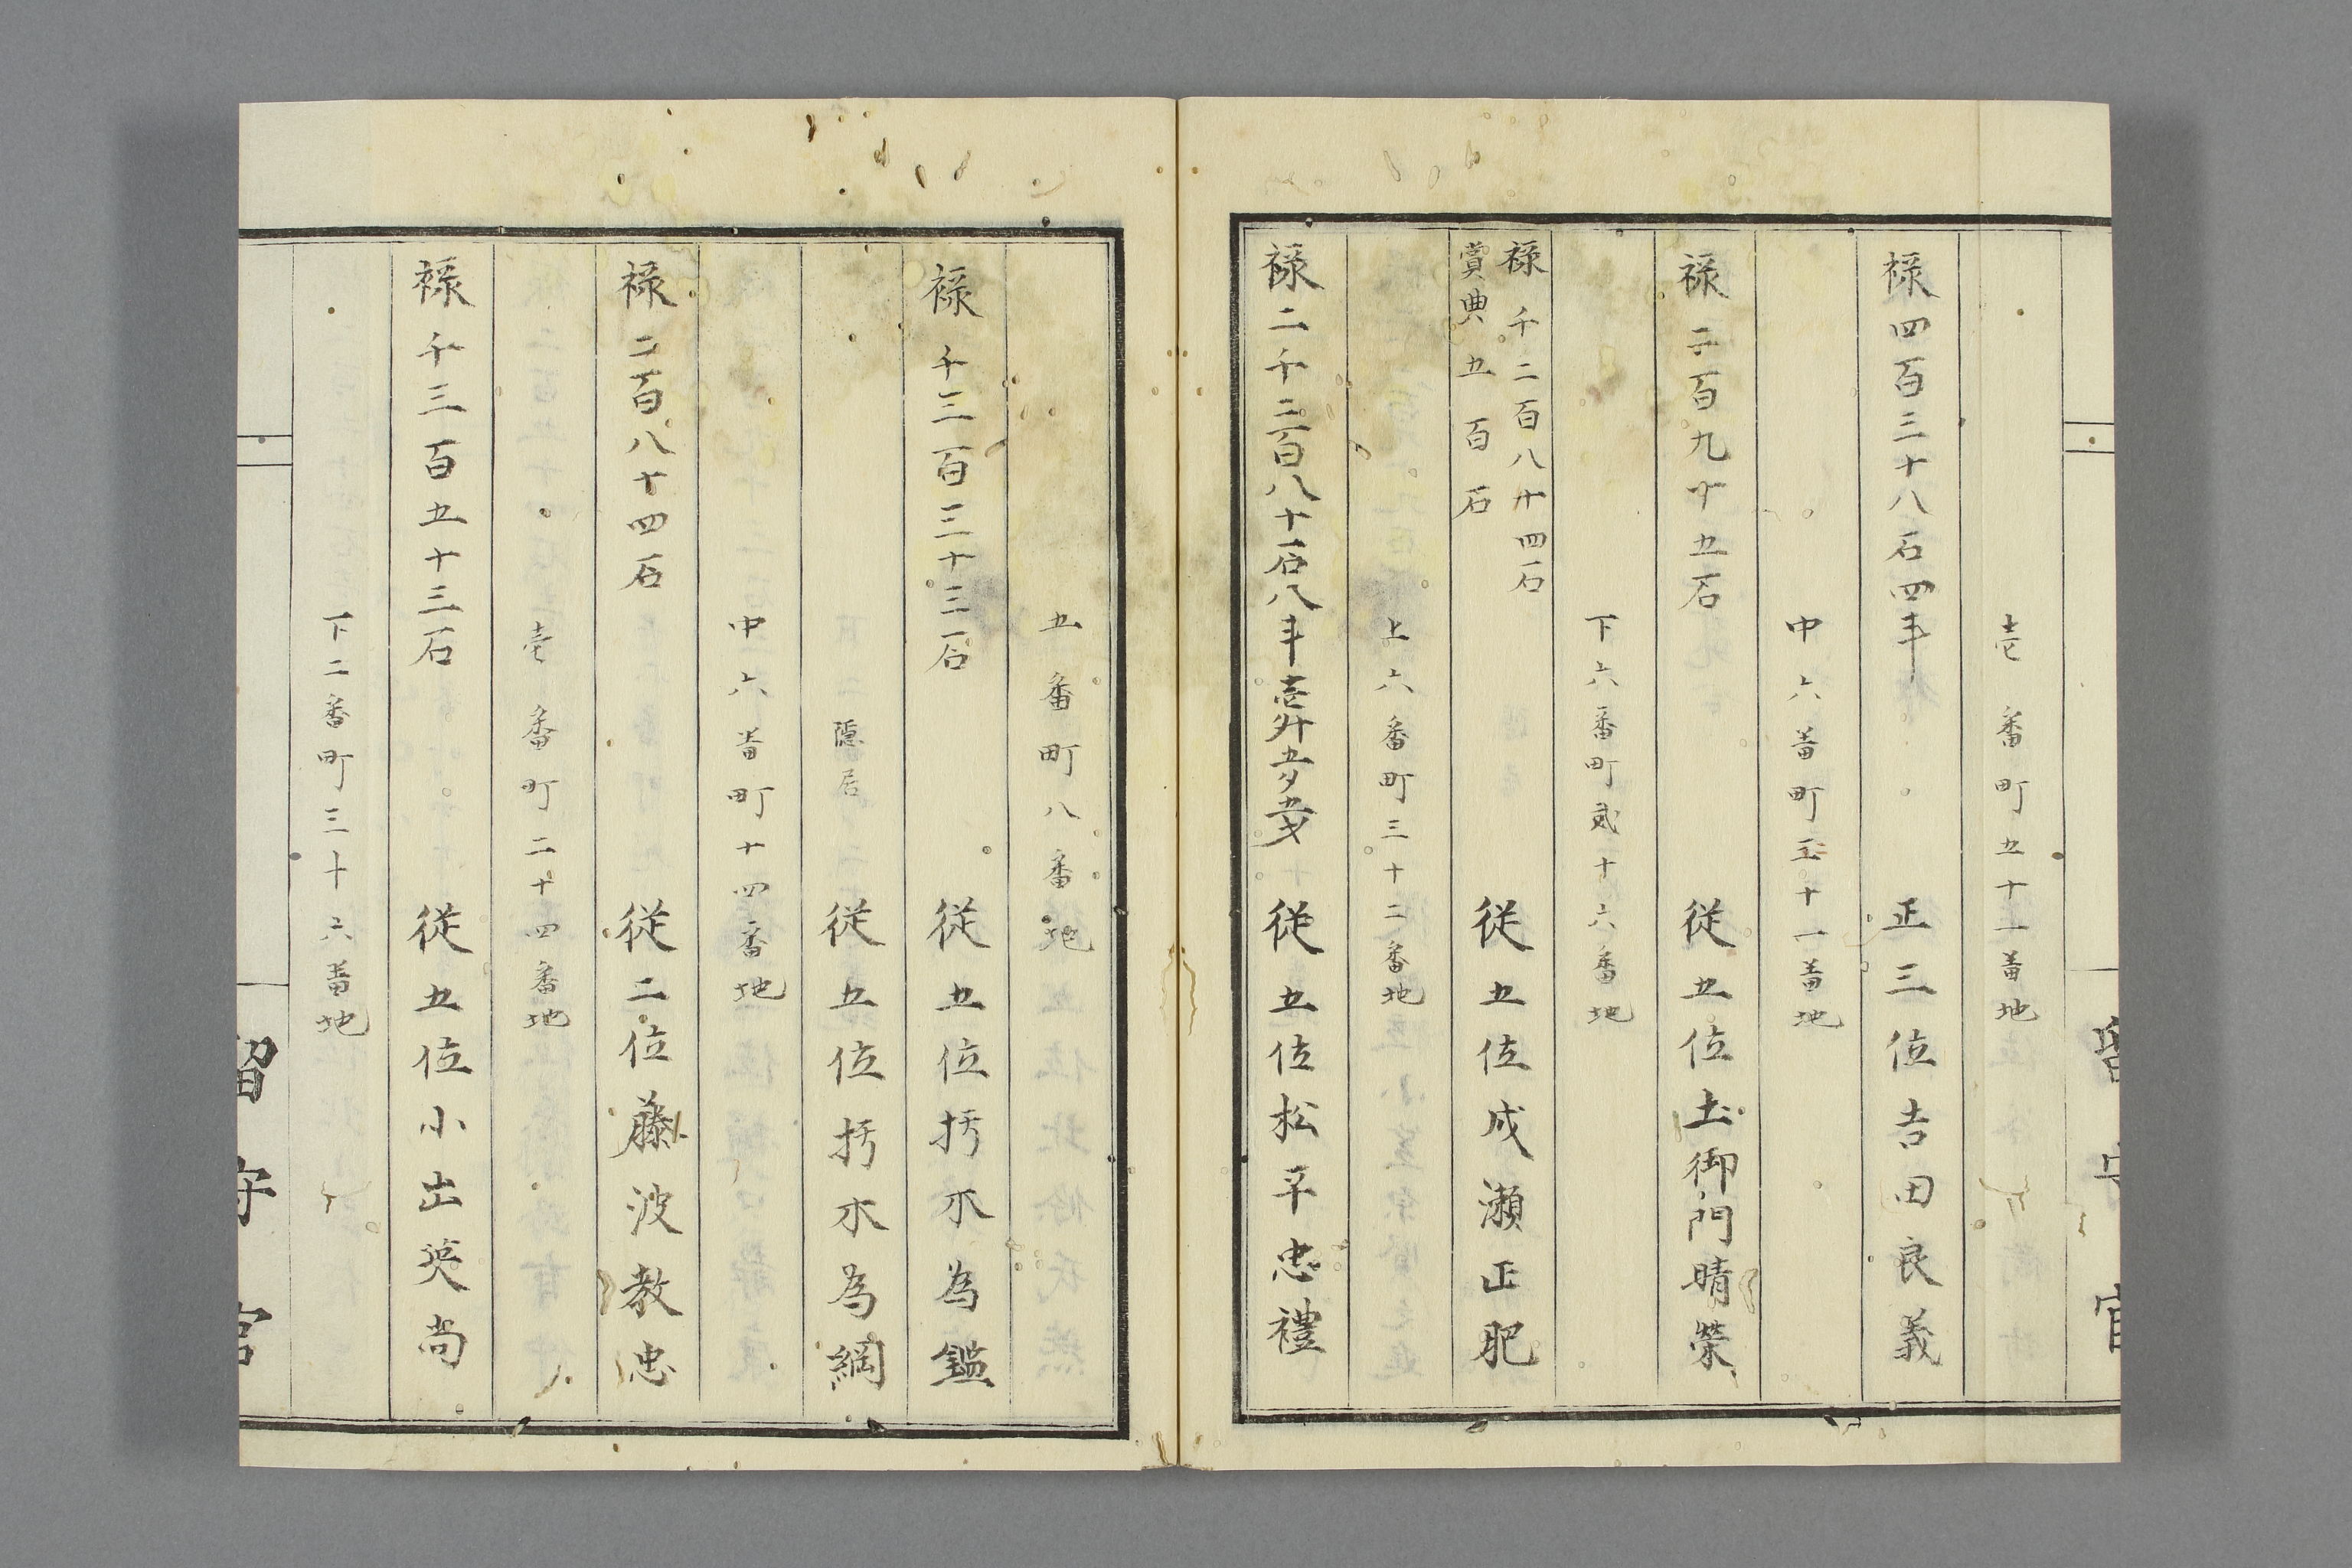 壱番町五十一番地
禄四百三十八石四斗　正三位吉田良義
中六番町五十一番地
禄二百九十五石　従五位土御門晴榮
下六番町貳十六番地
禄千二百八十四石
賞典五百石　従五位成瀬正肥
上六番町三十二番地
禄二千二百八十一石八斗壱升五夕五才　従五位松平忠禮
五番町八番地
禄千三百三十三石　従五位杤木為鑑
隠居　従五位杤木為綱
中六番町十四番地
禄二百八十四石　従二位藤波教忠
壱番町二十四番地
禄千三百五十三石　従五位小出英尚
下二番町三十六番地
留守官